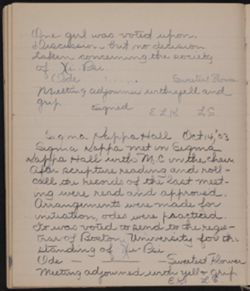 One girl was voted upon.
Discussion - but no decision
taken concerning the society
of Xi Psi.
Ode ..... Sweetest Flower
Meeting adjourned with yell and
grip.
Signed
E L K L S
Sigma Kappa Hall Oct 14, '03
Sigma Kappa met in Sigma
Kappa Hall with M.C. in the chair
After scripture reading and roll-
call the record of the last meet-
ing were read and approved.
Arrangements were made for
initiation, odes were practiced.
It was voted to send to the regis-
trar of Boston University for the
standing of Xi Psi
Ode - - - Sweetest Flower
Meeting adjourned with yell & grip
E L L S